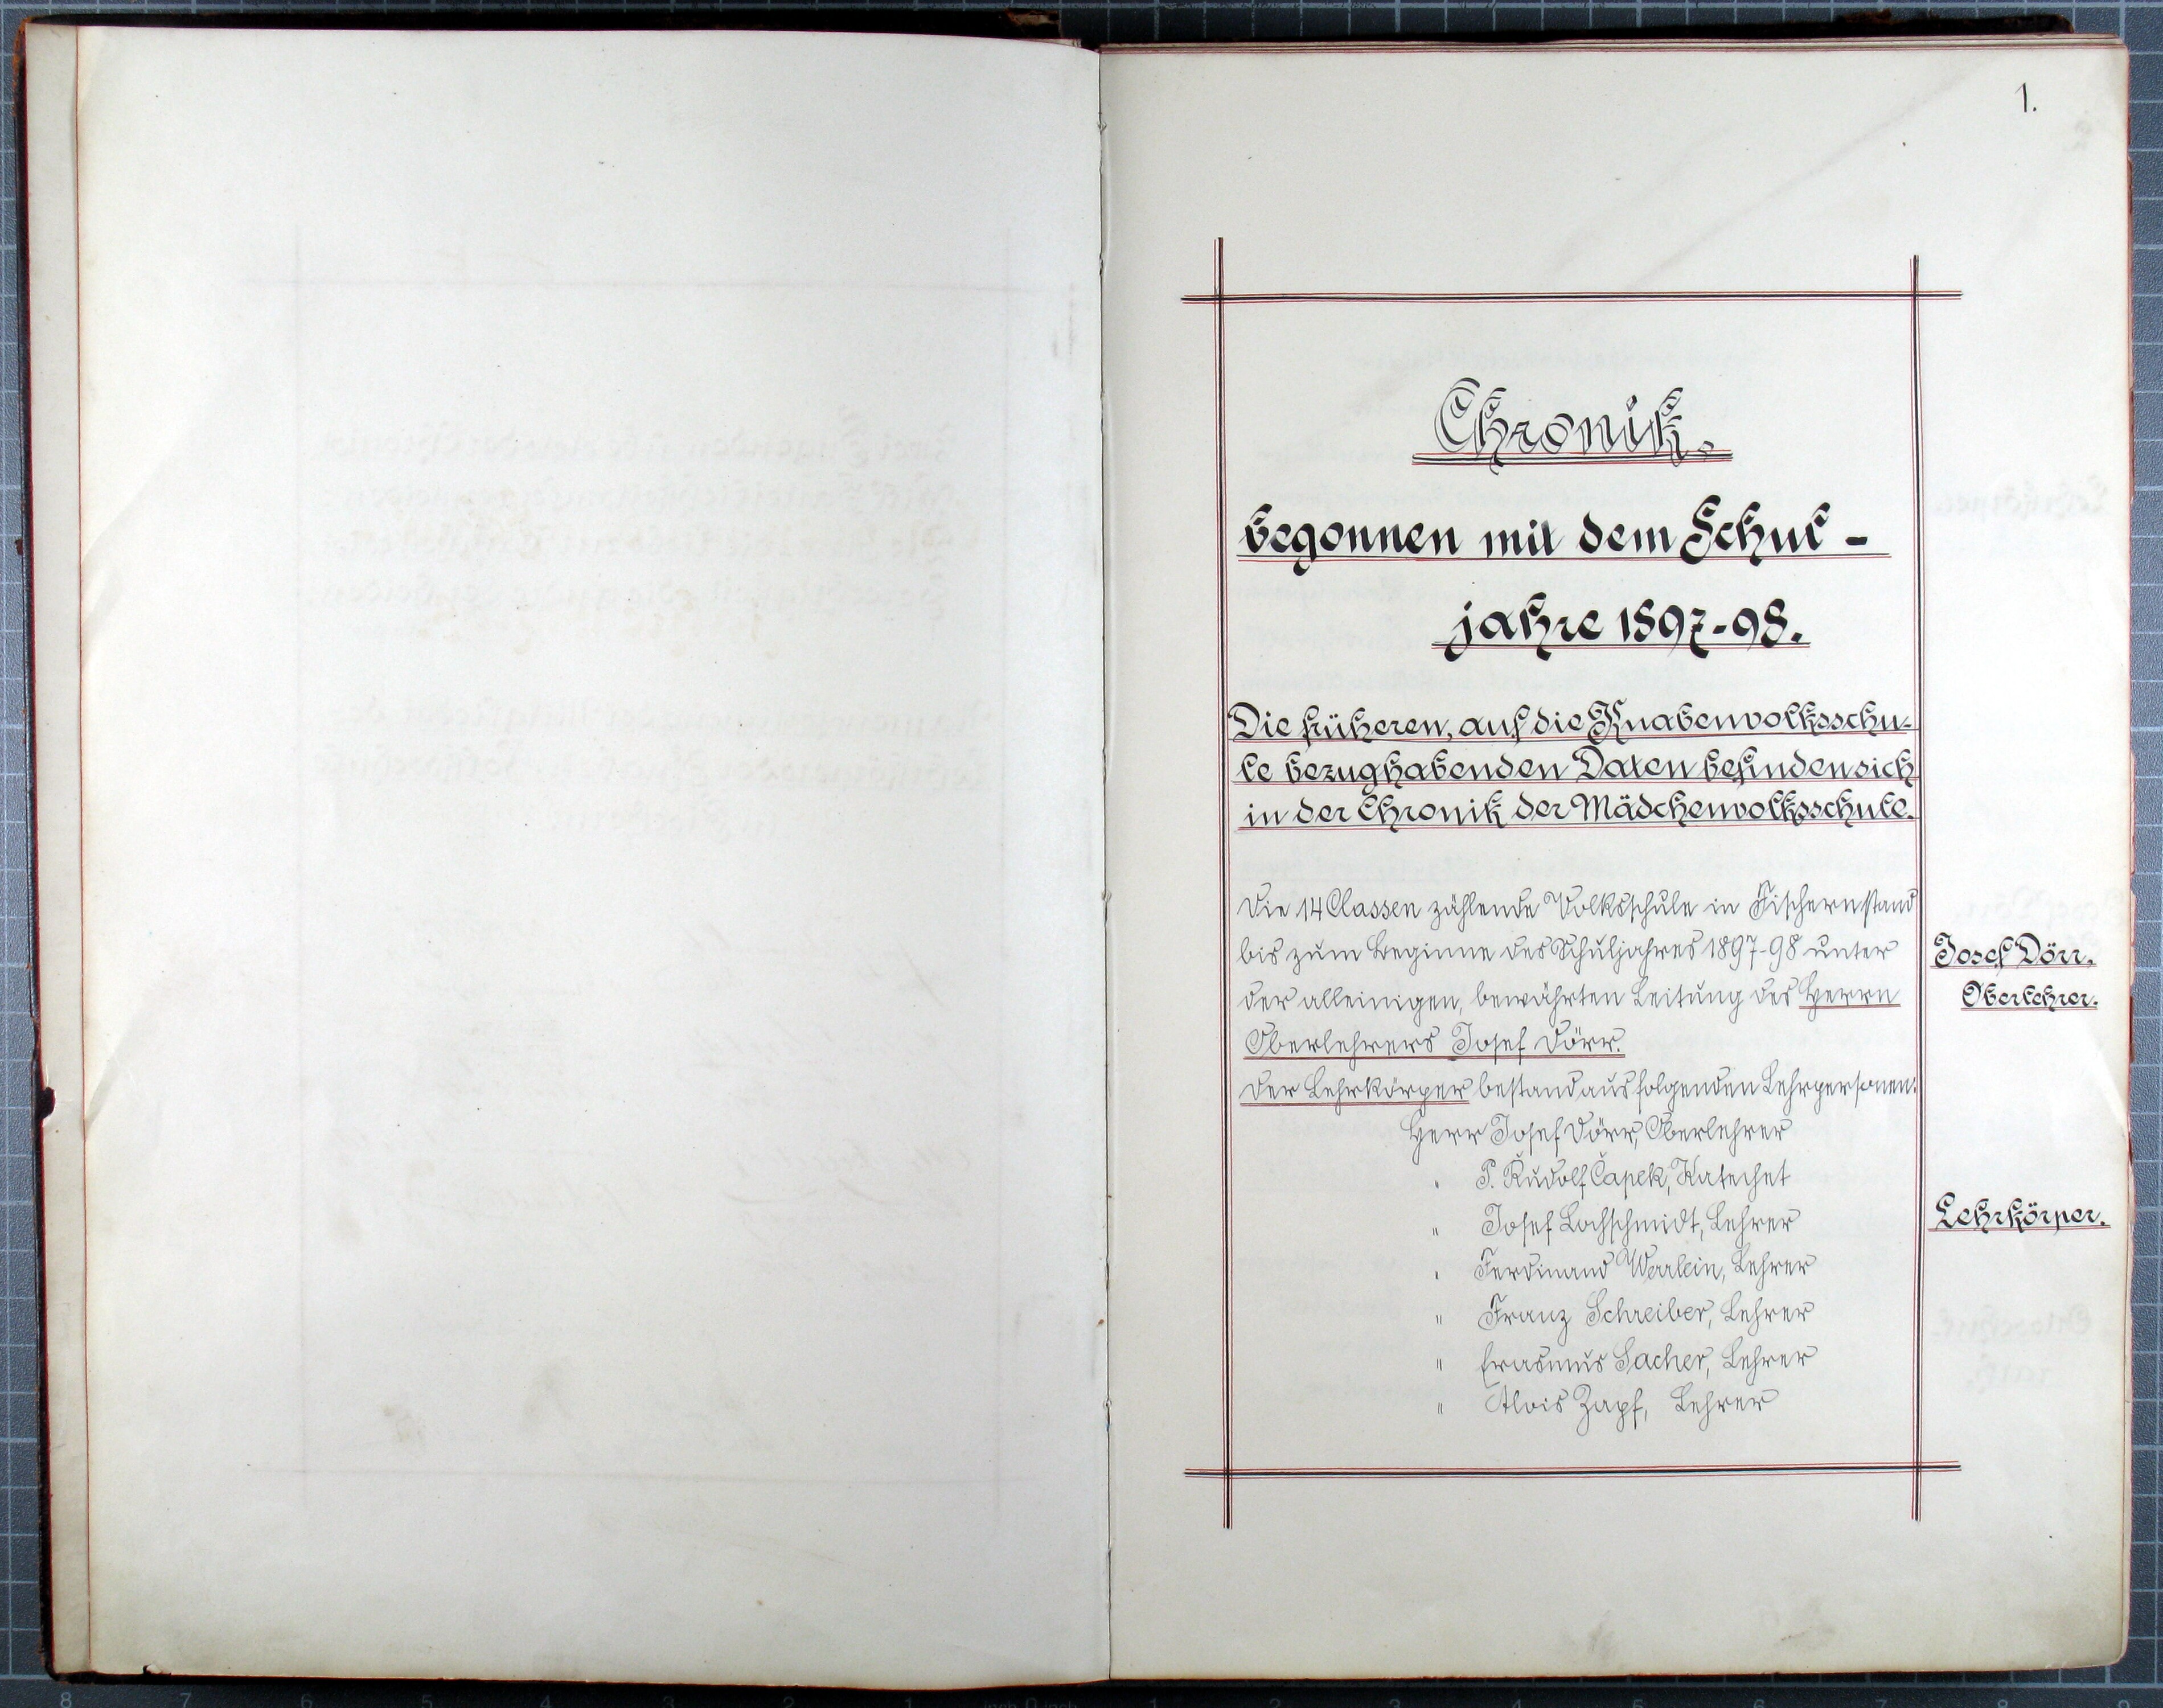 1.
Chronik.
begonnen mit dem Schul-
jahre 1897-98.
Die früheren, auf die Knabenvolksschu-
le bezughabenden Daten befinden sich
in der Chronik der Mädchenvolksschule.
Die 14 Classen zählende Volksschule in Fischern stand
bis zum Beginne des Schuljahres 1897-98 unter
der alleinigen, bewährten Leitung des Herrn
Oberlehrers Josef Dörr.
Josef Dörr.
Oberlehrer.
Der Lehrkörper bestand aus folgenden Lehrpersonen:
Herr Josef Dörr, Oberlehrer
" P. Rudolf Čapek, Katechet
" Josef Lochschmidt, Lehrer
Lehrkörper.
" Ferdinand Werlein, Lehrer
" Franz Schreiber, Lehrer
" Erasmus Sacher, Lehrer
" Alois Zapf, Lehrer